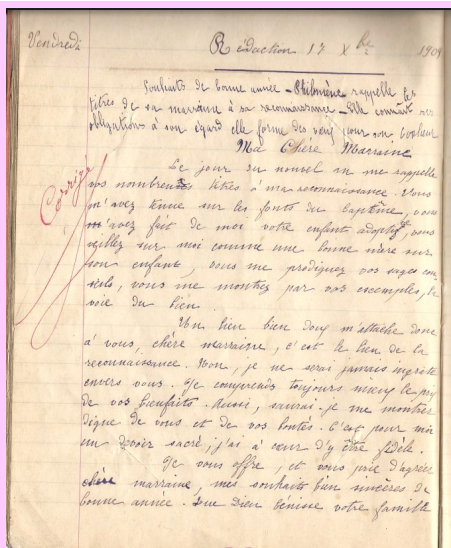 Vendredi Rédaction 17 Xbre 1909
Souhaits de bonne année - Philomène rappelle les
titres de sa marraine à sa reconnaissance - Elle connaît ses
obligations à son égard elle forme des vœux pour son bonheur
Ma Chère Marraine
Le jour du nouvel an me rappelle
vos nombreux titres à ma reconnaissance. Vous
m'avez tenue sur les fonts du baptême, vous
m'avez fait de moi votre enfant adoptif, vous
veillez sur moi comme une bonne mère sur
son enfant, vous me prodiguez vos sages con-
seils, vous me montrez par vos exemples, la
voie du bien
Corrigé
Un lien bien doux m'attache donc
à vous, chère marraine, c'est le lien de la
reconnaissance. Non, je ne serai jamais ingrate
envers vous. Je comprends toujours mieux le prix
de vos bienfaits. Aussi, saurai-je me montrer
digne de vous et de vos bontés. C'est pour moi
un devoir sacré, j'ai à cœur d'y être fidèle.
Je vous offre, et vous prie d'agréer
chère marraine, mes souhaits bien sincères de
bonne année. Que Dieu bénisse votre famille